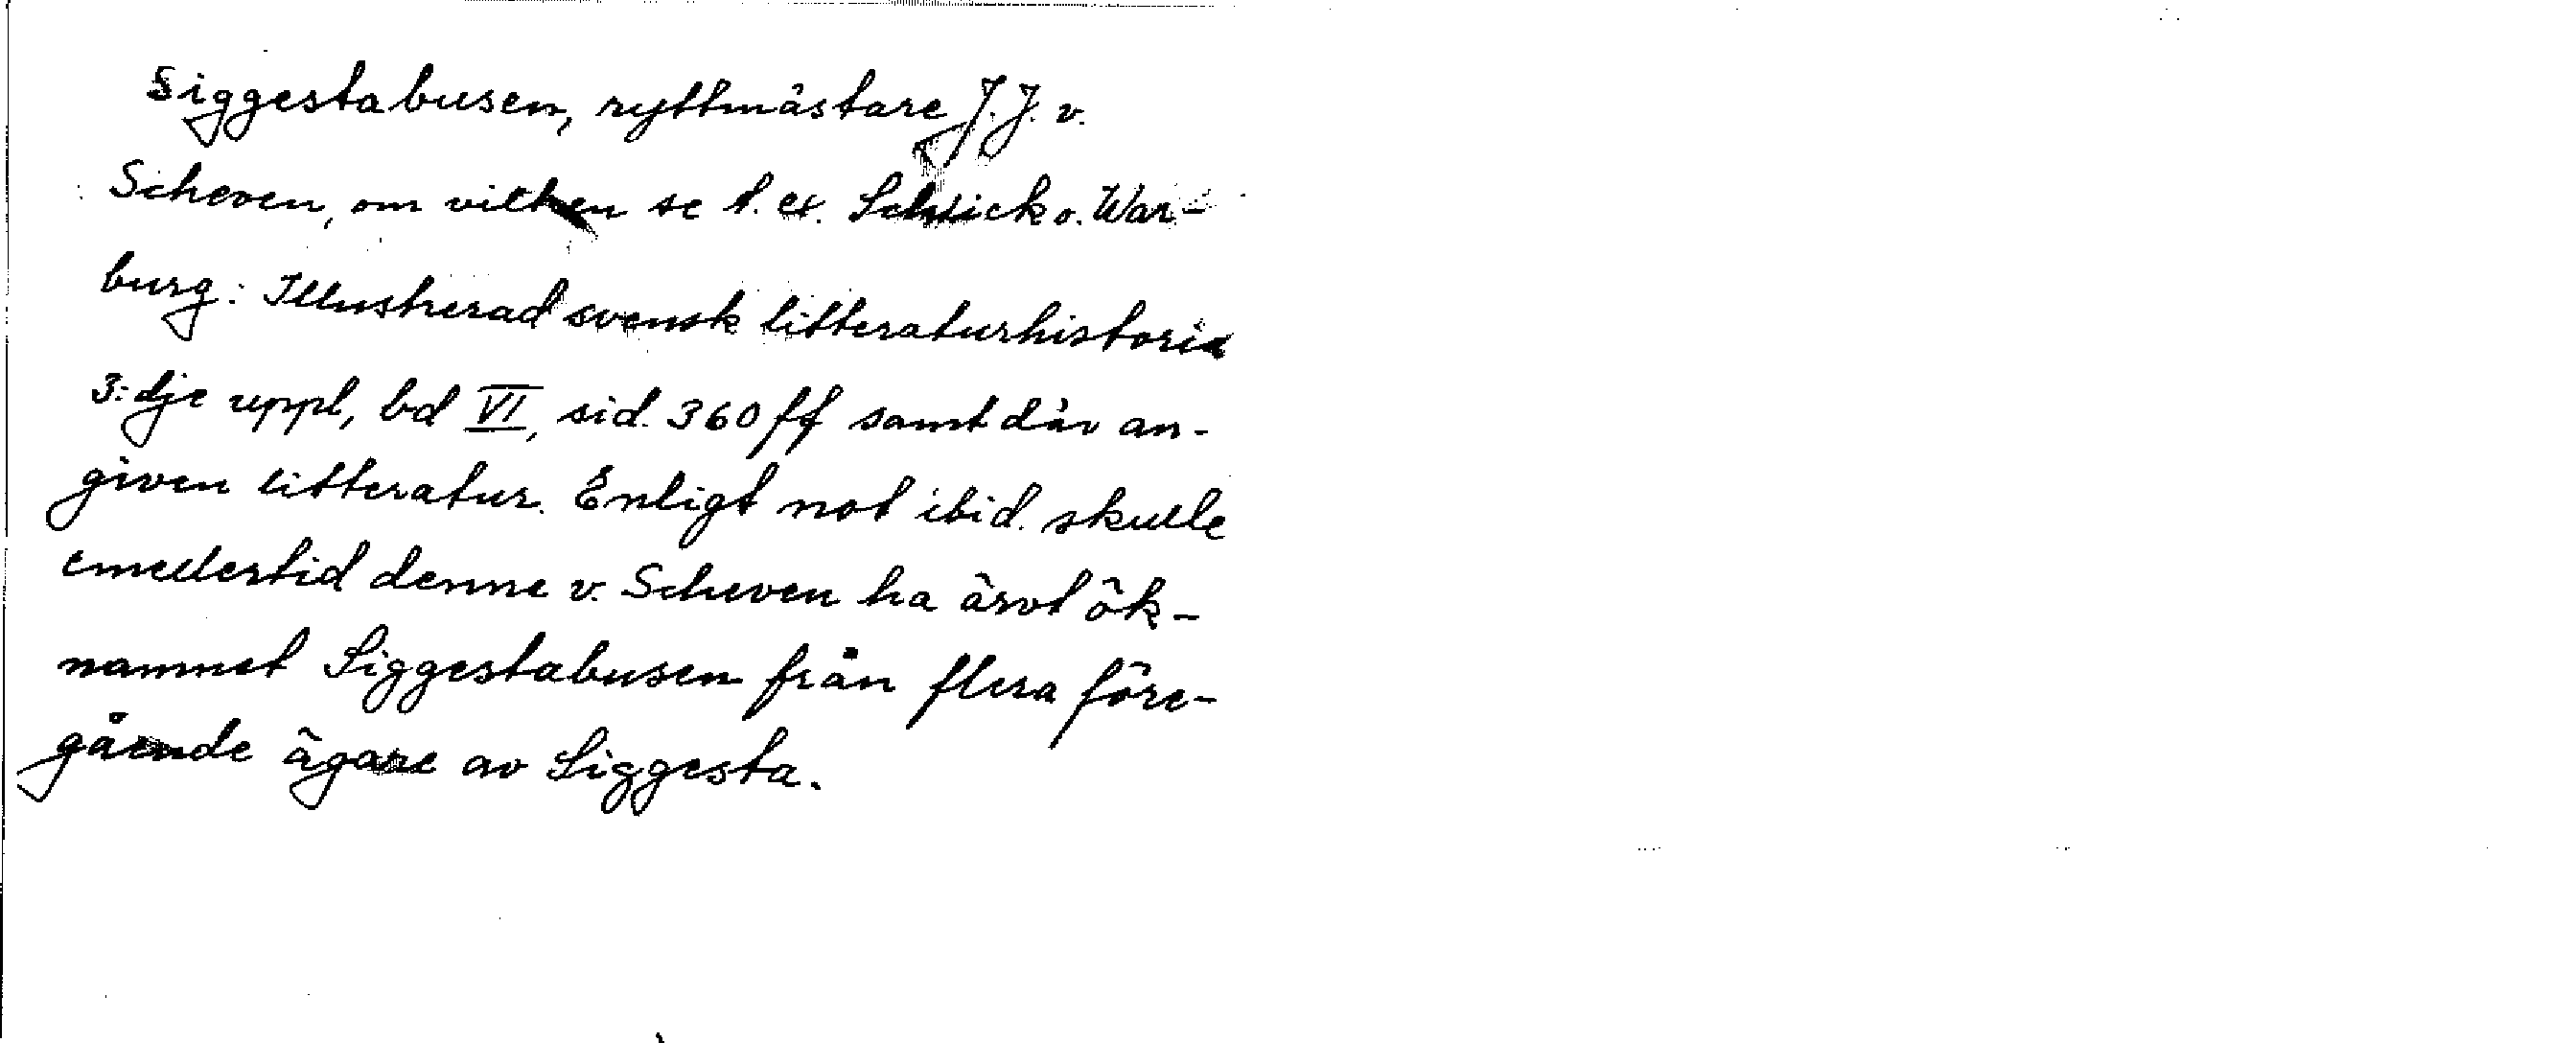 Siggestabusen, ryttmästare J. J. v.
Scheven, om vilken se t. ex. Schück o. War-
burg: Illustrerad svensk litteraturhistoria
3:dje uppl, bd VI, sid. 360 ff samt där an-
given litteratur. Enligt not ibid. skulle
emellertid denne v. Scheven ha ärvt ök-
namnet Siggestabusen från flera före-
gående ägare av Siggesta.